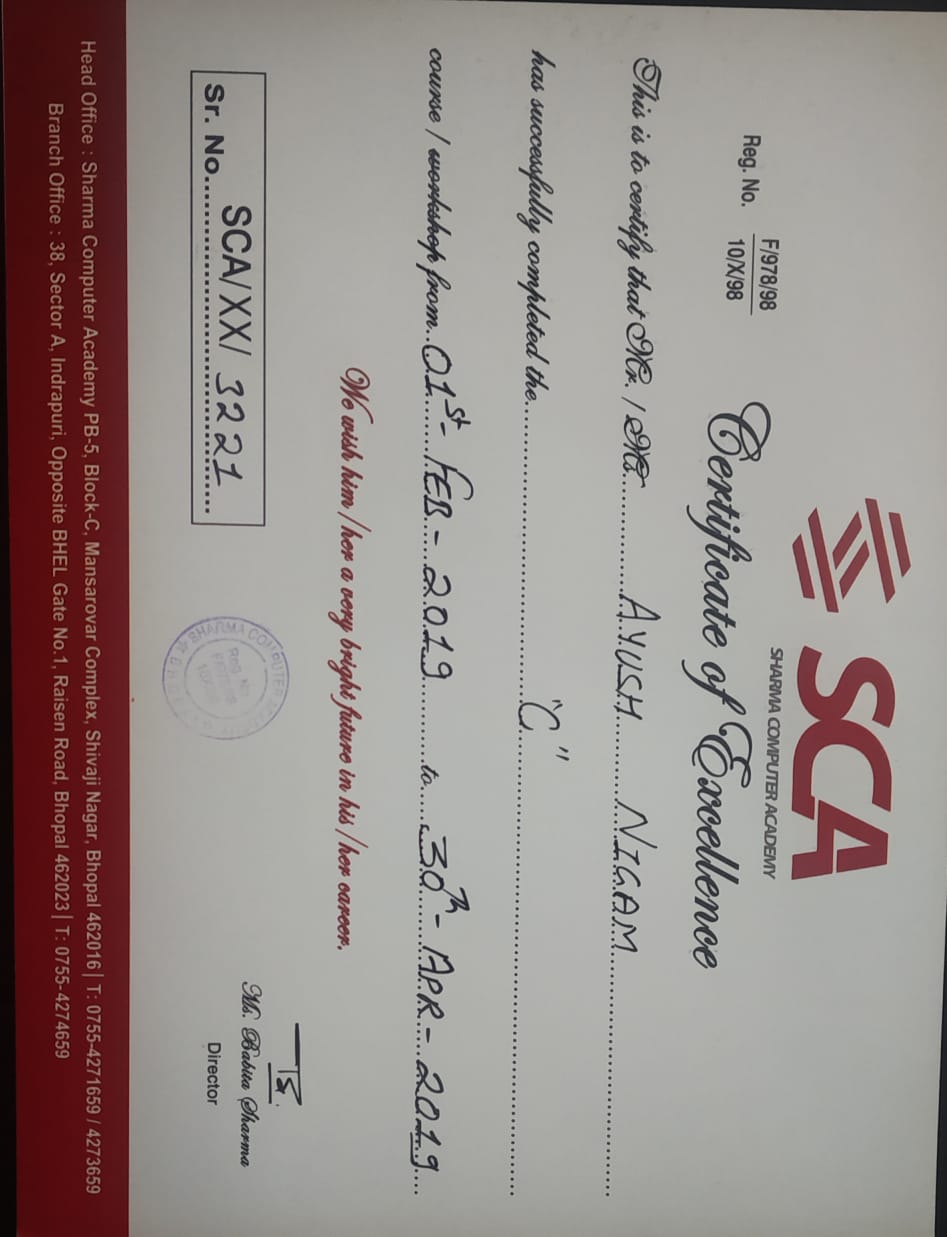 SCA
SHARMA COMPUTER ACADEMY
Reg. No. F/978/98
10/X/98
Certificate of Excellence
This is to certify that Mr. / Ms. AYUSH NIGAM
has successfully completed the "C"
course / workshop from 01st - FEB - 2019 to 30th - APR - 2019
We wish him / her a very bright future in his / her career.
Sr. No. SCA/XX/ 3221
SHARMA COMPUTER
Reg. No.
Ms. Babita Sharma
Director
Head Office : Sharma Computer Academy PB-5, Block-C, Mansarovar Complex, Shivaji Nagar, Bhopal 462016 | T: 0755-4271659 / 4273659
Branch Office : 38, Sector A, Indrapuri, Opposite BHEL Gate No.1, Raisen Road, Bhopal 462023 | T: 0755-4274659